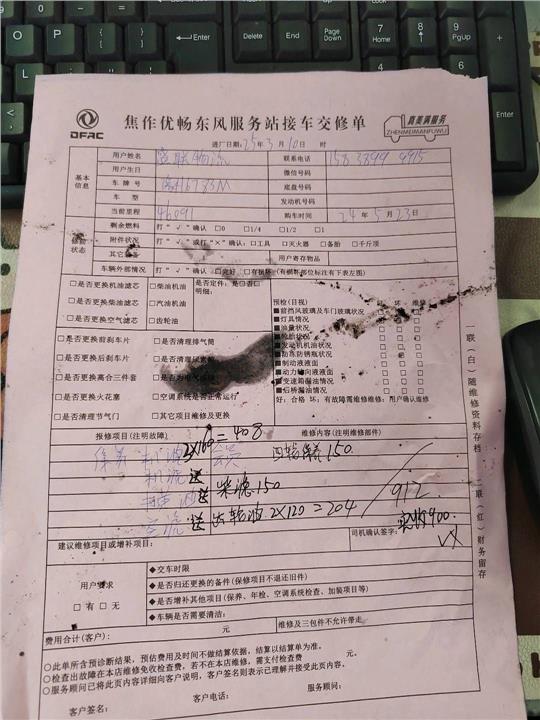 焦作优畅东风服务站接车交修单
DFAC
真美满服务
ZHENMEIMANFUWU
进厂日期: 25年3月10日 时
基本信息
用户姓名
联系电话 158 3899 4915
用户生日
微信号码
车牌号
底盘号码
车型
发动机号码
当前里程 46091
购车时间 24年5月23日
状态
剩余燃油 打“√”确认 □0 □1/4 □1/2 □1
附件状况 打“√”或打“×”确认:□工具 □灭火器 □备胎 □千斤顶
用户寄存物品
车辆外部情况 打“√”确认 □完好 □有损坏(有损坏部位标注有下表左图)
□是否更换机油滤芯 □柴油机油
□是否更换柴油滤芯 □汽油机油
□是否更换空气滤芯 □齿轮油
是否定件:□是□否
明细:
□是否更换前刹车片 □是否清理排气筒
□是否更换后刹车片
□是否更换离合三件套
□是否更换火花塞 □空调系统是否正常运行
□是否清理节气门 □其它项目维修及更换
预检(目视) 好 坏 维修
■前挡风玻璃及车门玻璃状况
■灯具情况
■油量状况
■发动机机油状况
■防冻防锈瓶状况
■制动液液面
■动力转向液液面
■变速箱漏油情况
■后桥漏油情况
好:合格 坏:有故障需维修维修:用户确认维修
报修项目(注明故障) 维修内容(注明维修部件)
保养 机滤
四轮保养 150
机滤 送
送 柴滤 150
送 齿轮油 2X120=204
912
实收900.
建议维修项目或增补项目:
司机确认签字:
用户要求
□有 □无
◆交车时限
◆是否归还更换的备件(保修项目不退还旧件)
◆是否增补其他项目(保养、年检、空调系统检查、加装项目等)
◆车辆是否需要清洁:
费用合计(客户): 元
维修及三包件不允许带走
○此单所含预诊断结果,预估费用及时间不做结算依据,结算以结算单为准。
○检查出故障在本店维修免收检查费,若不在本店维修,需支付检查费 元。
○服务顾问已将此页内容详细向客户说明,客户签名则表示已理解并接受此页内容。
客户签名: 客户电话: 服务顾问:
一联(白)随维修资料存档 二联(红)财务留存
Enter
Delete
End
Page Down
7 Home
8
9 PgUp
4
5
6